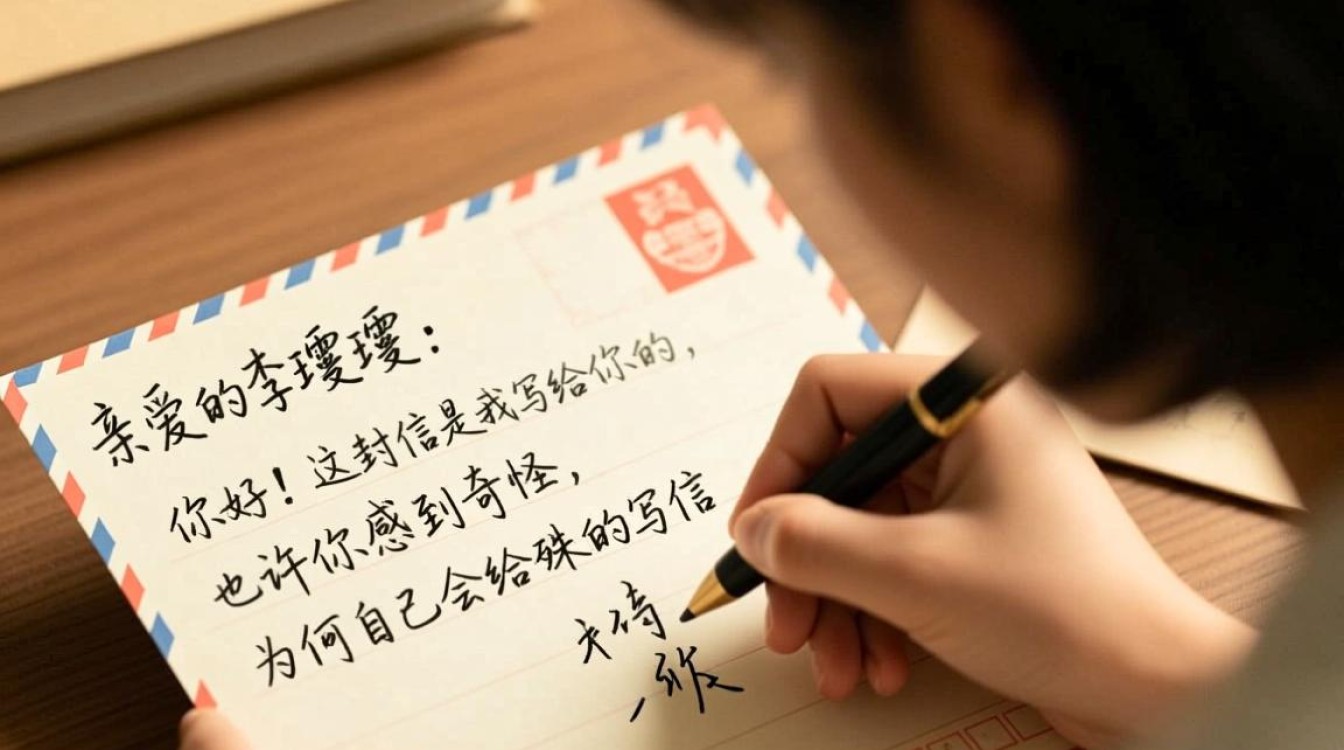 亲爱的李璎璎：
你好！这封信是我写给你的，
也许你感到奇怪，
为何自己会给殊的写信